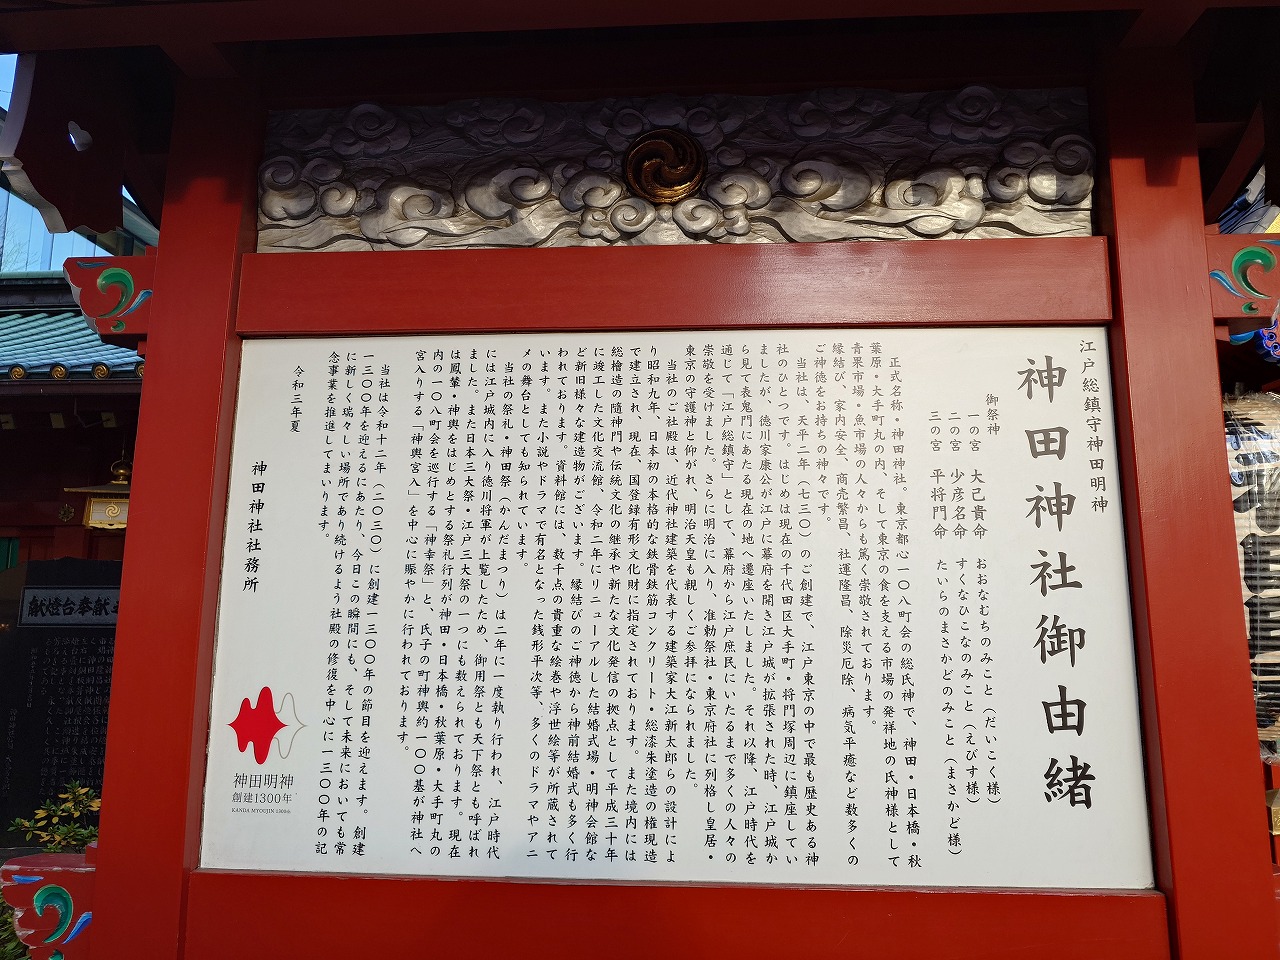 江戸総鎮守神田明神
神田神社御由緒
御祭神
一の宮 大己貴命 おおなむちのみこと（だいこく様）
二の宮 少彦名命 すくなひこなのみこと（えびす様）
三の宮 平将門命 たいらのまさかどのみこと（まさかど様）
正式名称・神田神社。東京都心一〇八町会の総氏神で、神田・日本橋・秋
葉原・大手町丸の内、そして東京の食を支える市場の発祥地の氏神様として
青果市場・魚市場の人々からも篤く崇敬されております。
縁結び、家内安全、商売繁昌、社運隆昌、除災厄除、病気平癒など数多くの
ご神徳をお持ちの神々です。
当社は、天平二年（七三〇）のご創建で、江戸東京の中で最も歴史ある神
社のひとつです。はじめは現在の千代田区大手町・将門塚周辺に鎮座してい
ましたが、徳川家康公が江戸に幕府を開き江戸城が拡張された時、江戸城か
ら見て表鬼門にあたる現在の地へ遷座いたしました。それ以降、江戸時代を
通じて「江戸総鎮守」として、幕府から江戸庶民にいたるまで多くの人々の
崇敬を受けました。さらに明治に入り、准勅祭社・東京府社に列格し皇居・
東京の守護神と仰がれ、明治天皇も親しくご参拝になられました。
当社のご社殿は、近代神社建築を代表する建築家大江新太郎らの設計によ
り昭和九年、日本初の本格的な鉄骨鉄筋コンクリート・総漆朱塗造の権現造
で建立され、現在、国登録有形文化財に指定されております。また境内には
総檜造の隨神門や伝統文化の継承や新たな文化発信の拠点として平成三十年
に竣工した文化交流館、令和二年にリニューアルした結婚式場・明神会館な
ど新旧様々な建造物がございます。縁結びのご神徳から神前結婚式も多く行
われております。資料館には、数千点の貴重な絵巻や浮世絵等が所蔵されて
います。また小説やドラマで有名となった銭形平次等、多くのドラマやアニ
メの舞台としても知られています。
当社の祭礼・神田祭（かんだまつり）は二年に一度執り行われ、江戸時代
には江戸城内に入り徳川将軍が上覧したため、御用祭とも天下祭とも呼ばれ
ました。また日本三大祭・江戸三大祭の一つにも数えられております。現在
は鳳輦・神輿をはじめとする祭礼行列が神田・日本橋・秋葉原・大手町丸の
内の一〇八町会を巡行する「神幸祭」と、氏子の町神輿約一〇〇基が神社へ
宮入りする「神輿宮入」を中心に賑やかに行われております。
当社は令和十二年（二〇三〇）に創建一三〇〇年の節目を迎えます。創建
一三〇〇年を迎えるにあたり、今日この瞬間にも、そして未来においても常
に新しく瑞々しい場所であり続けるよう社殿の修復を中心に一三〇〇年の記
念事業を推進してまいります。
令和三年夏
神田神社社務所
神田明神
創建1300年
KANDA MYOUJIN 1300th
献燈台奉献